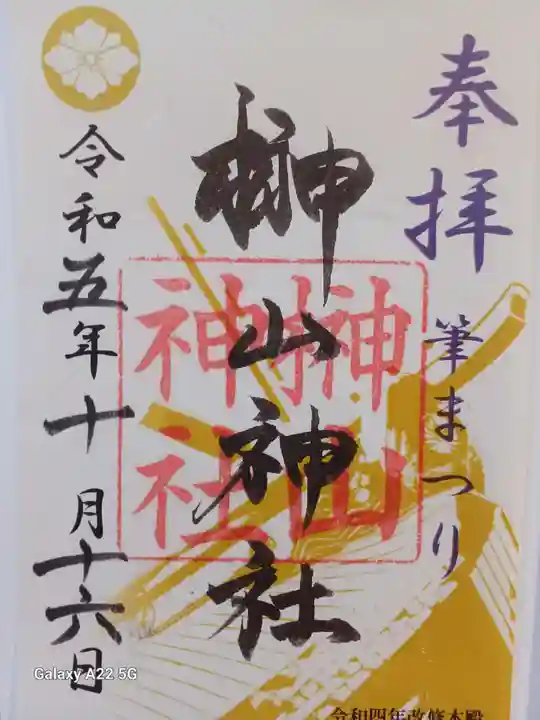 奉拝
筆まつり
榊山神社
榊山
神社
令和五年十月十六日
令和四年改修本殿
Galaxy A22 5G